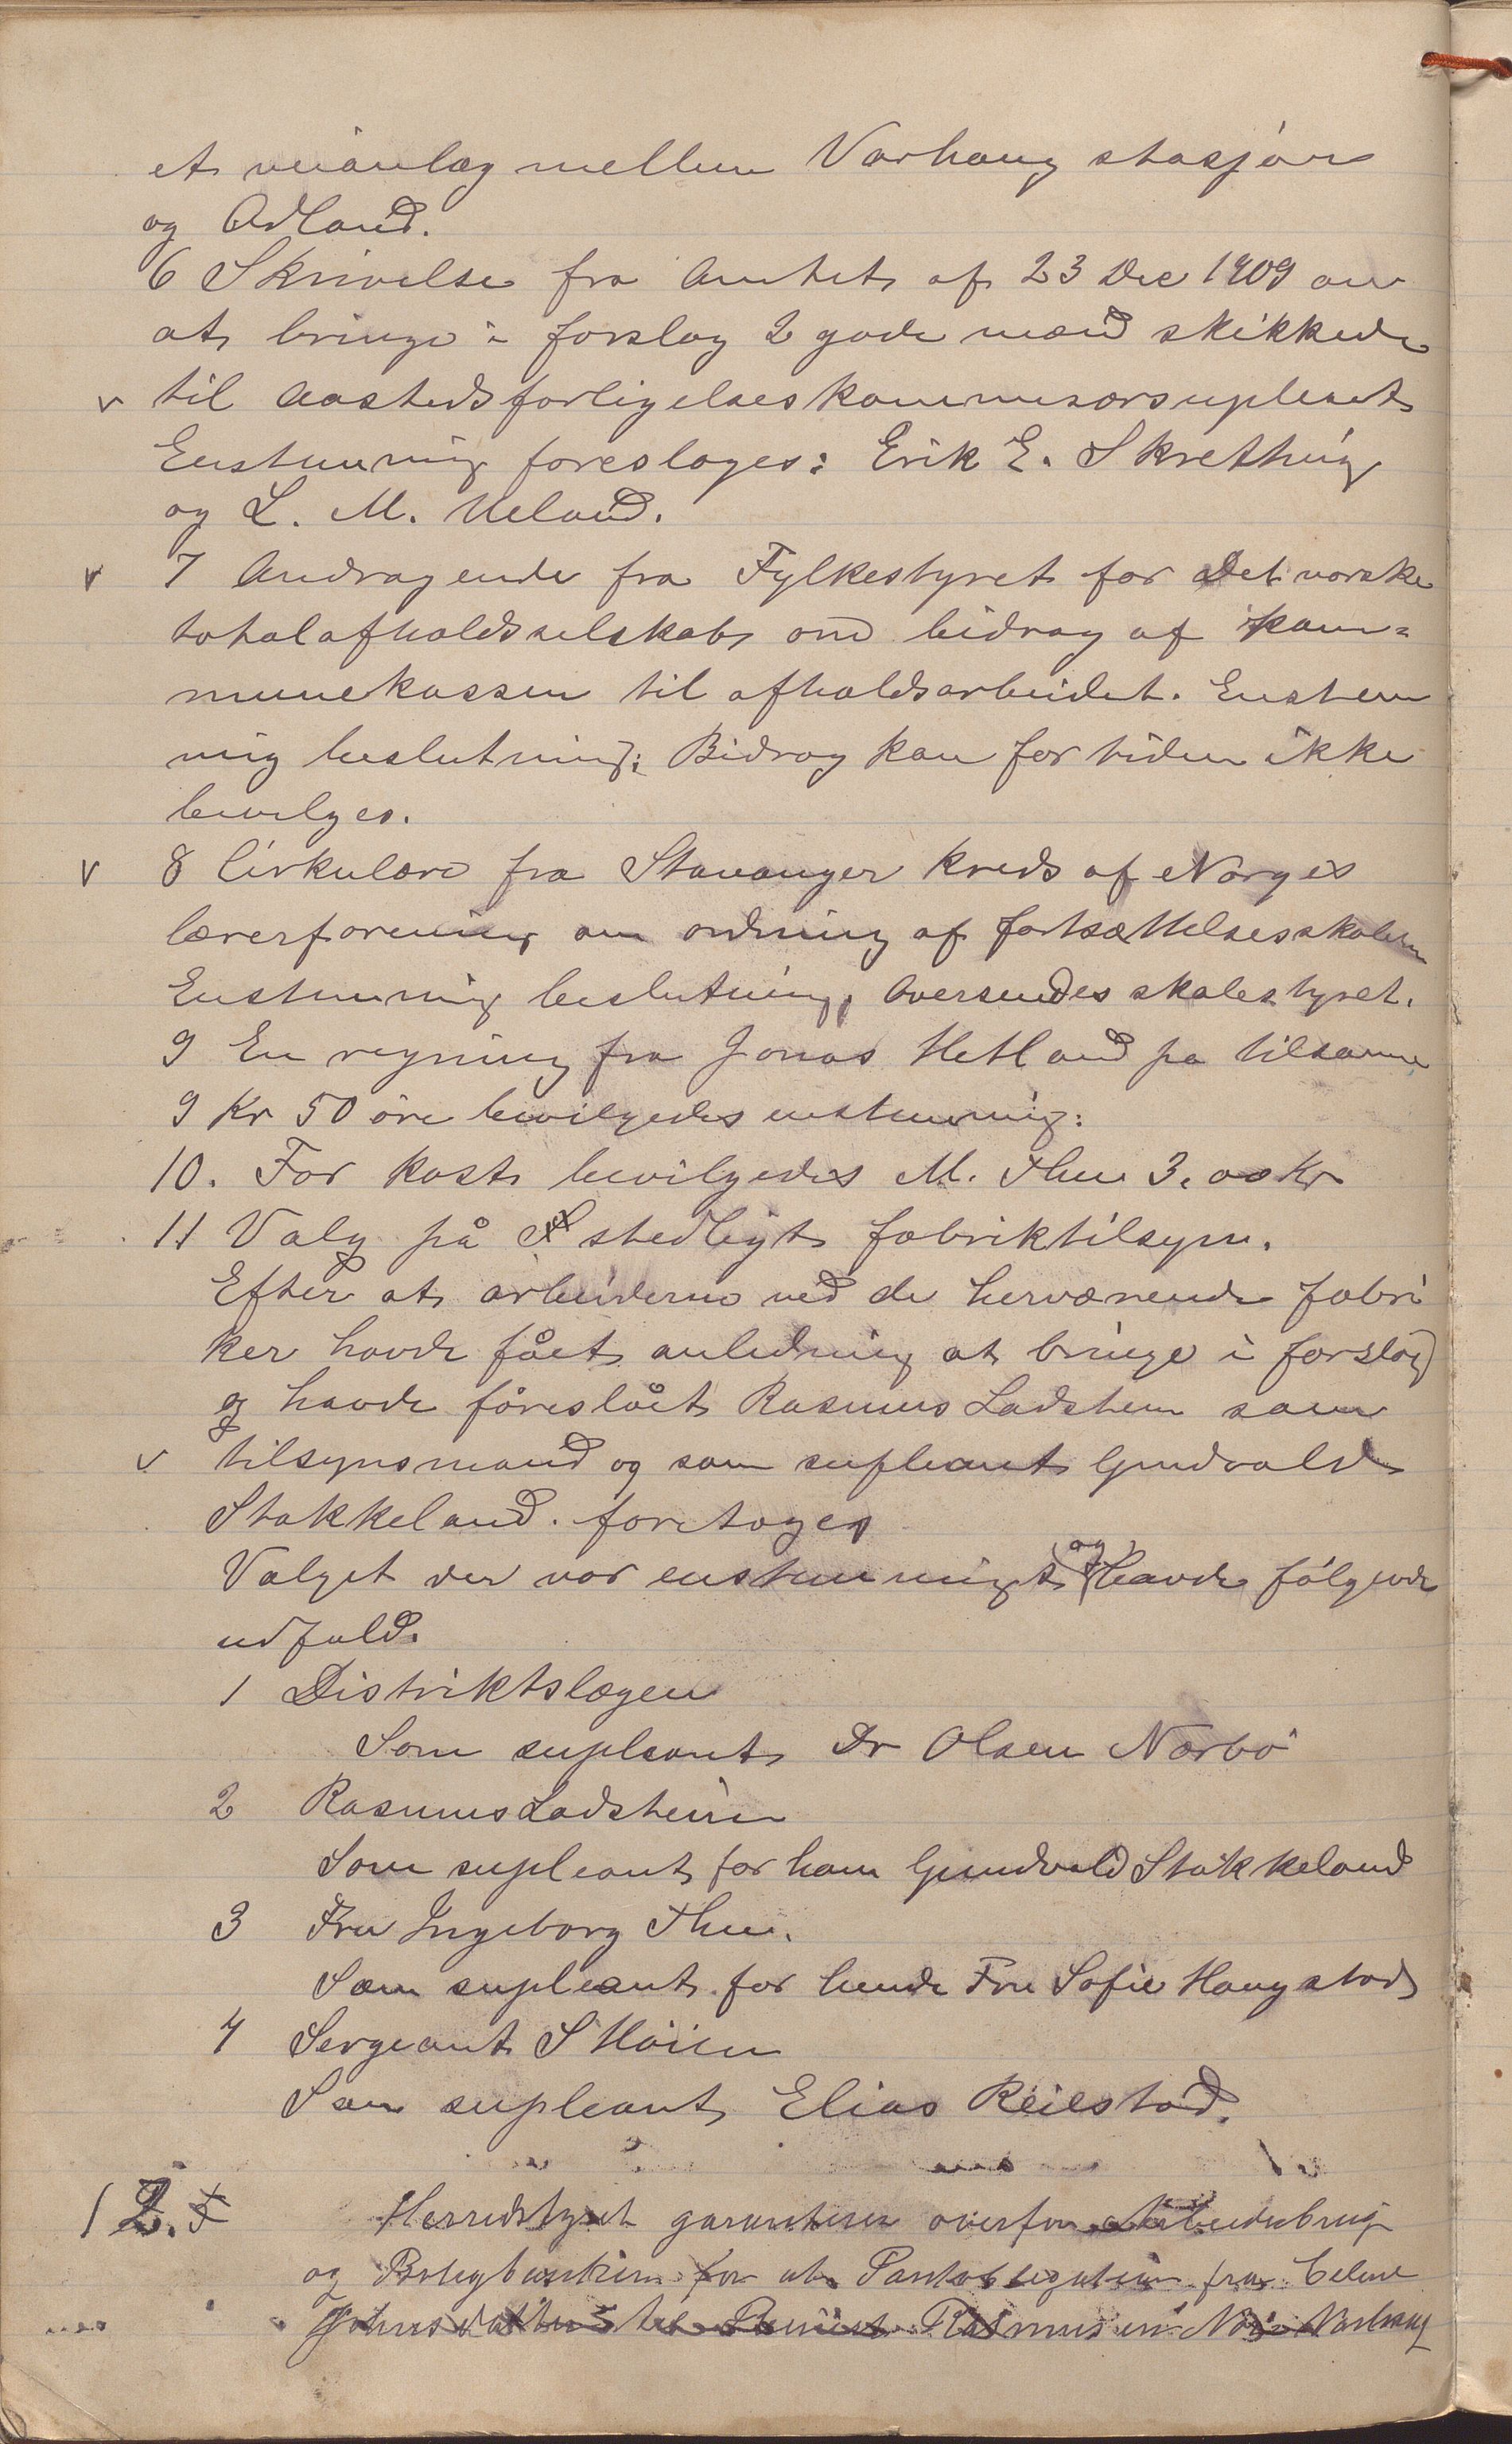 et veianlæg mellem Varhaug stasjon
og Ødland.
6 Skrivelse fra Amtet af 23 Dec 1909 om
at bringe i forslag 2 gode mænd skikkede
v til Aastedsforligelseskommisærsupleant
Enstemmig foresloges: Erik E. Skretting
og L. M. Ueland.
v 7 Andragende fra Fylkestyret for Det norske
totalafholdsselskab om bidrag af kom=
munekassen til afholdsarbeidet. Enstem
mig beslutning: Bidrag kan for tiden ikke
bevilges.
v 8 Cirkulære fra Stavanger kreds af Norges
lærerforening om ordning af fortsættelsesskolen
Enstemmig beslutning, oversendes skolestyret.
9 En regning fra Jonas Hetland på tilsamme
9 Kr 50 øre bevilgedes enstemmig:
10. For kost bevilgedes M. Thu 3,00 Kr
11 Valg på stedligt fabriktilsyn.
Efter at arbeiderne ved de herværende fabri
ker havde fået anledning at bringe i forslag
og havde foreslået Rasmus Ladstein som
v tilsynsmand og som supleant Gundvald
Stokkeland. foretoges
Valget der var enstemmigt og havde følgende
udfald.
1 Distriktslægen
Som supleant Dr Olsen Nærbø
2 Rasmus Ladstein
Som supleant for ham Gundvald Stokkeland
3 Fru Ingeborg Thu.
Som supleant for hende Fru Sofie Haugstad
4 Sergeant S Høien
Som supleant Elias Reiestad.
12. Herredstyret garanterer overfor Arbeiderbrug
og Boligbanken for at Pantobligation fra Celine
Johnsdatter til Rasmussen Varhaug